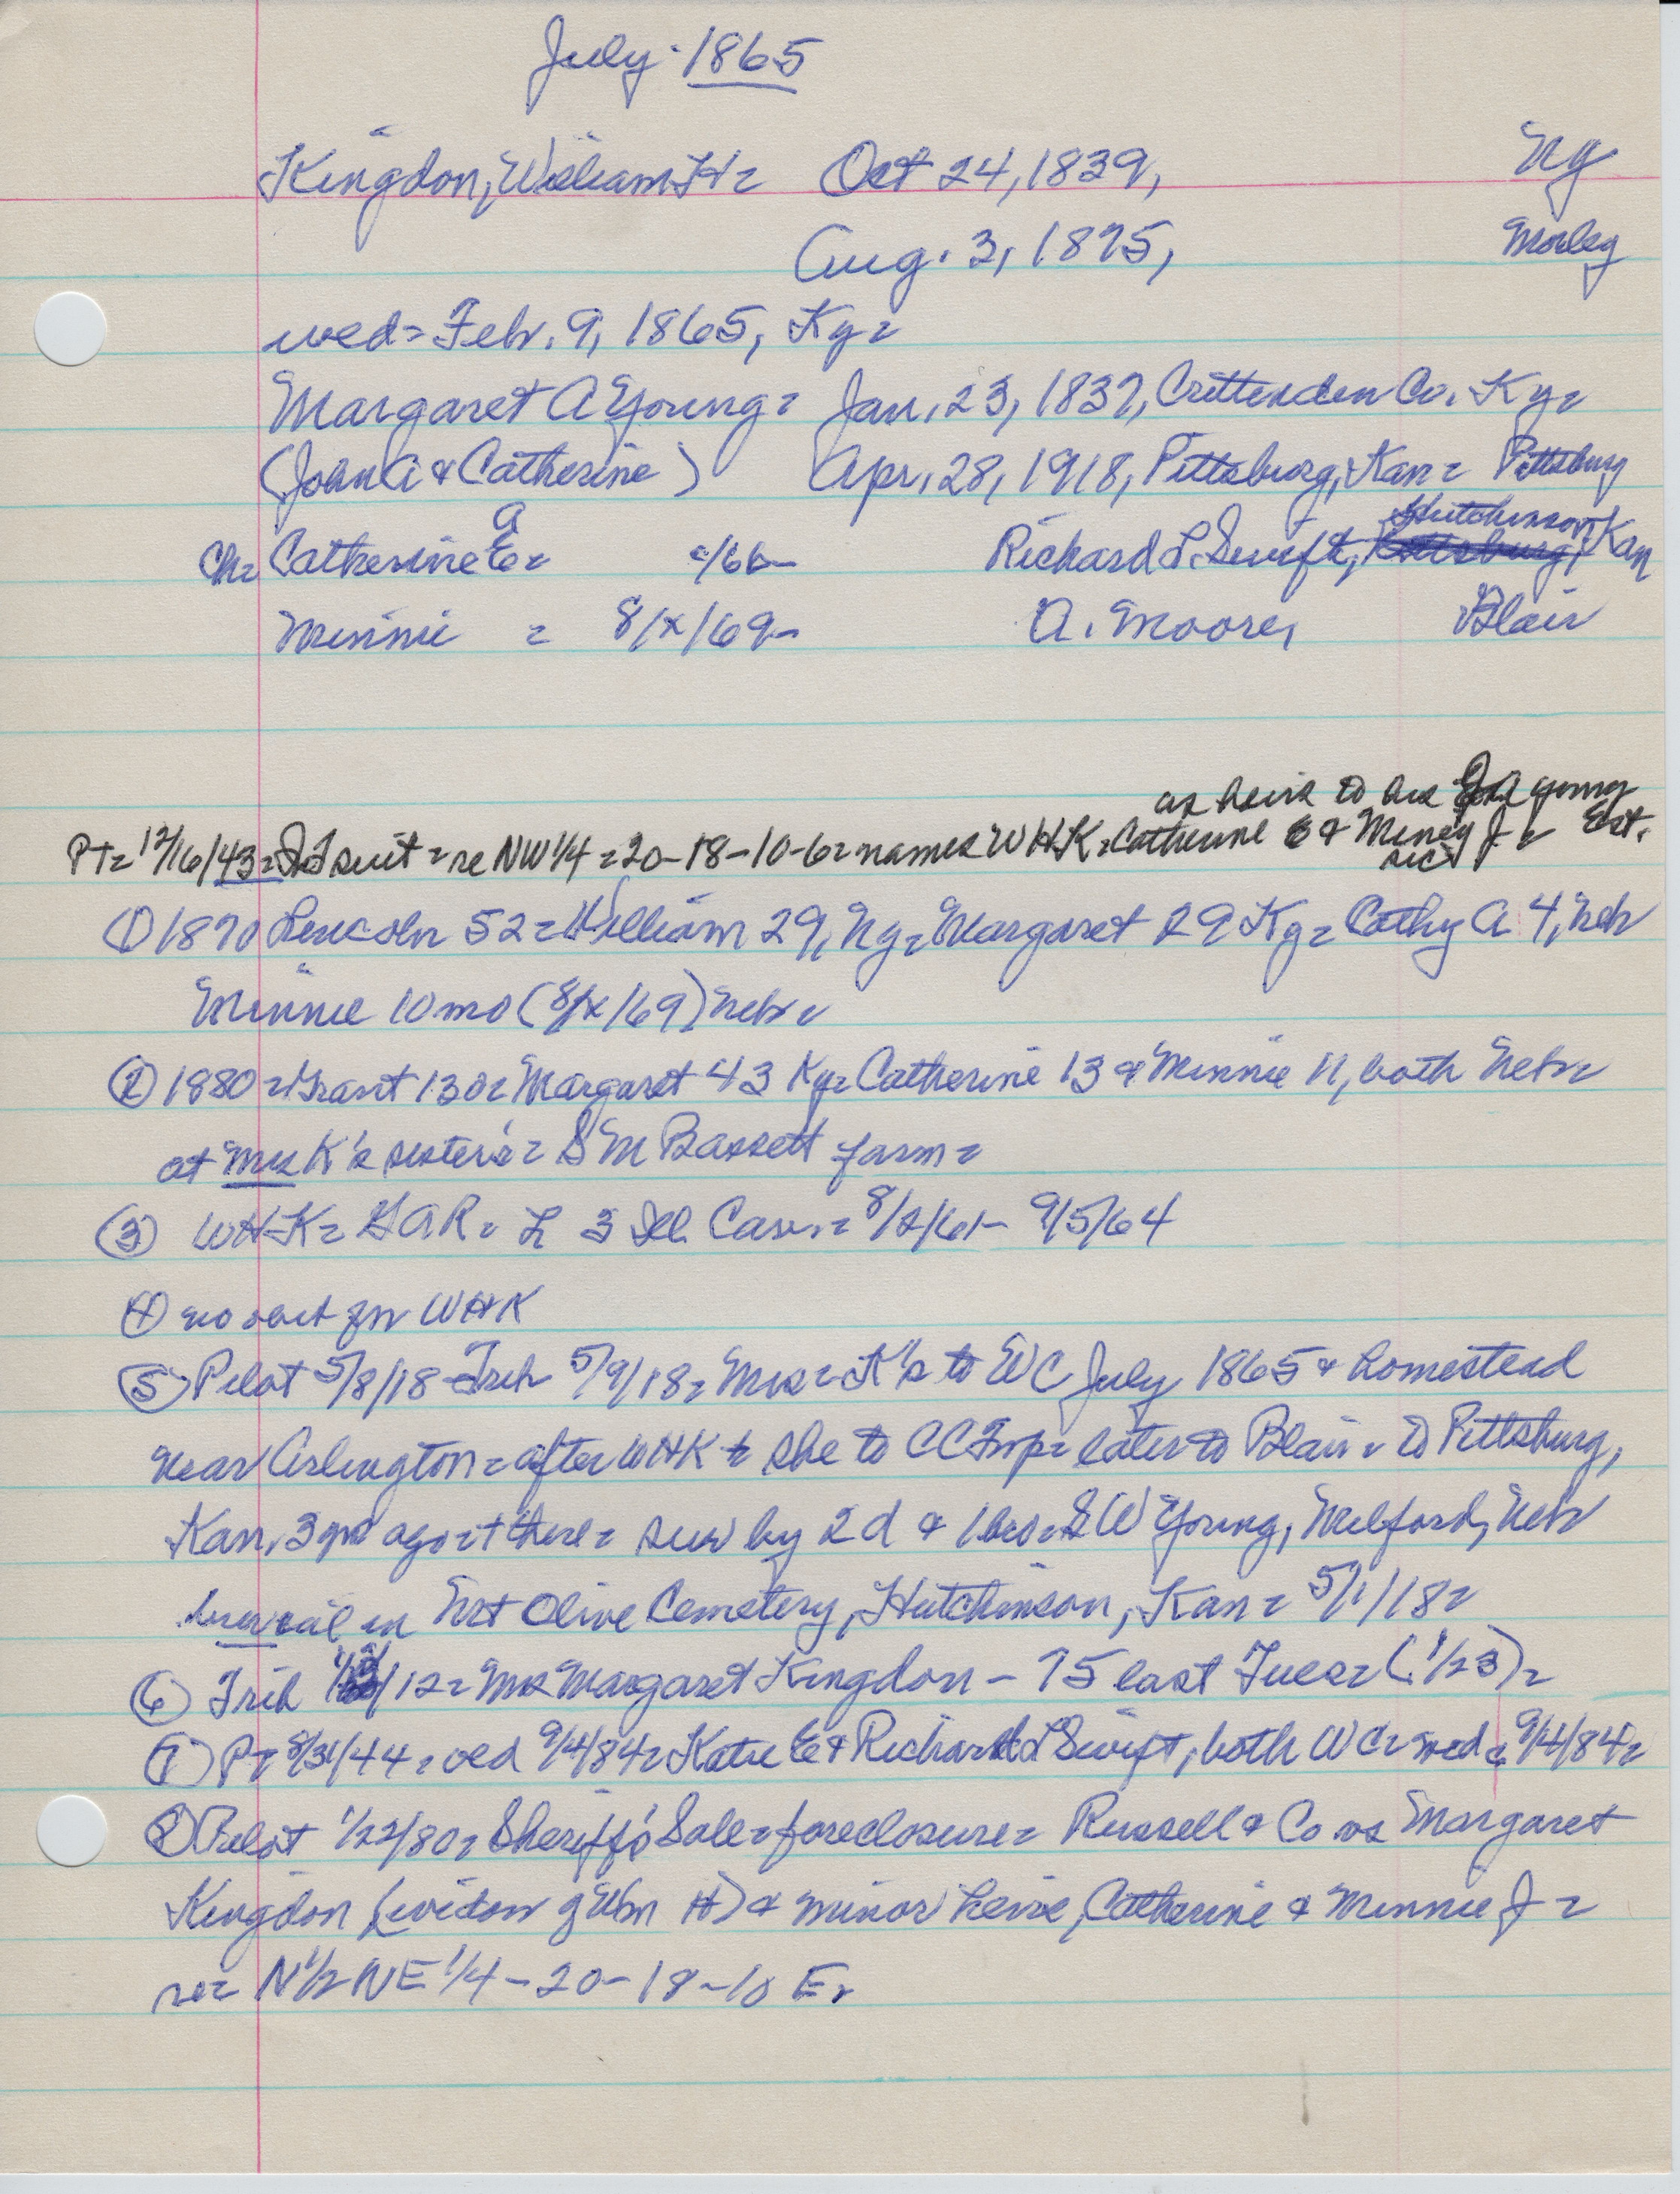 July 1865
Kingdon, William H= Oct 24, 1839, NY
Aug. 3, 1875, Morley
wed= Febr. 9, 1865, Ky=
Margaret A Young= Jan. 23, 1837, Crittenden Co. Ky=
(John A & Catherine) Apr. 28, 1918, Pittsburg, Kan= Pittsburg
a Hutchinson,
Ch= Catherine E= c/66- Richard L. Swift, Pittsburg, Kan
Minnie = 8/x/69- A. Moore, Blair
as heirs to
young
PT= 12/16/43= suit=re NW 1/4=20-18-10-6=names WHK=Catherine E & Minny J= Est.
sic
① 1870 Lincoln 52=William 29, NY=Margaret 29 Ky=Cathy A 4, Neb
Minnie 10 mo (8/x/69) Nebr=
② 1880=Grant 130=Margaret 43 Ky=Catherine 13 & Minnie 11, both Neb=
at Mrs K's sister's= S M Bassett farm=
③ WHK= GAR= L 3 Ill. Cav.= 8/2/61- 9/5/64
④ no obit for WHK
⑤ Pilot 5/8/18-Trib 5/9/18= Mrs=K's to WC July 1865 & homestead
near Arlington=after WHK she to CC Twp= later to Blair= to Pittsburg,
Kan, 3 yrs ago=+there= surv by 2 d & 1 bro=S W Young, Milford, Neb
burial in Mt Olive Cemetery, Hutchinson, Kan= 5/1/18=
⑥ Trib /12= Mrs Margaret Kingdon - 75 last Tues= (1/23)=
⑦ PT 8/31/44= 9/4/84= Katie E & Richard L Swift, both WC= wed= 9/4/84=
⑧ Pilot 1/22/80= Sheriff's Sale=foreclosure= Russell & Co vs Margaret
Kingdon (widow of Wm H) & minor heirs, Catherine & Minnie J=
re= N 1/2 NE 1/4-20-18-10 E=